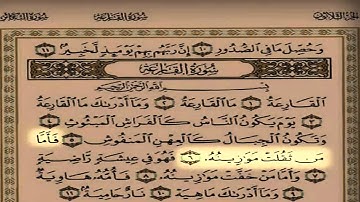 الجزء الثلاثون سورة القارعة سورة التكاثر
وَحُصِّلَ مَا فِي الصُّدُورِ ١٠ إِنَّ رَبَّهُم بِهِمْ يَوْمَئِذٍ لَّخَبِيرٌ ١١
سُورَةُ القَارِعَةِ
بِسْمِ اللَّهِ الرَّحْمَٰنِ الرَّحِيمِ
الْقَارِعَةُ ١ مَا الْقَارِعَةُ ٢ وَمَا أَدْرَاكَ مَا الْقَارِعَةُ
٣ يَوْمَ يَكُونُ النَّاسُ كَالْفَرَاشِ الْمَبْثُوثِ ٤
وَتَكُونُ الْجِبَالُ كَالْعِهْنِ الْمَنفُوشِ ٥ فَأَمَّا
مَن ثَقُلَتْ مَوَازِينُهُ ٦ فَهُوَ فِي عِيشَةٍ رَّاضِيَةٍ
٧ وَأَمَّا مَنْ خَفَّتْ مَوَازِينُهُ ٨ فَأُمُّهُ هَاوِيَةٌ
٩ وَمَا أَدْرَاكَ مَا هِيَهْ ١٠ نَارٌ حَامِيَةٌ ١١